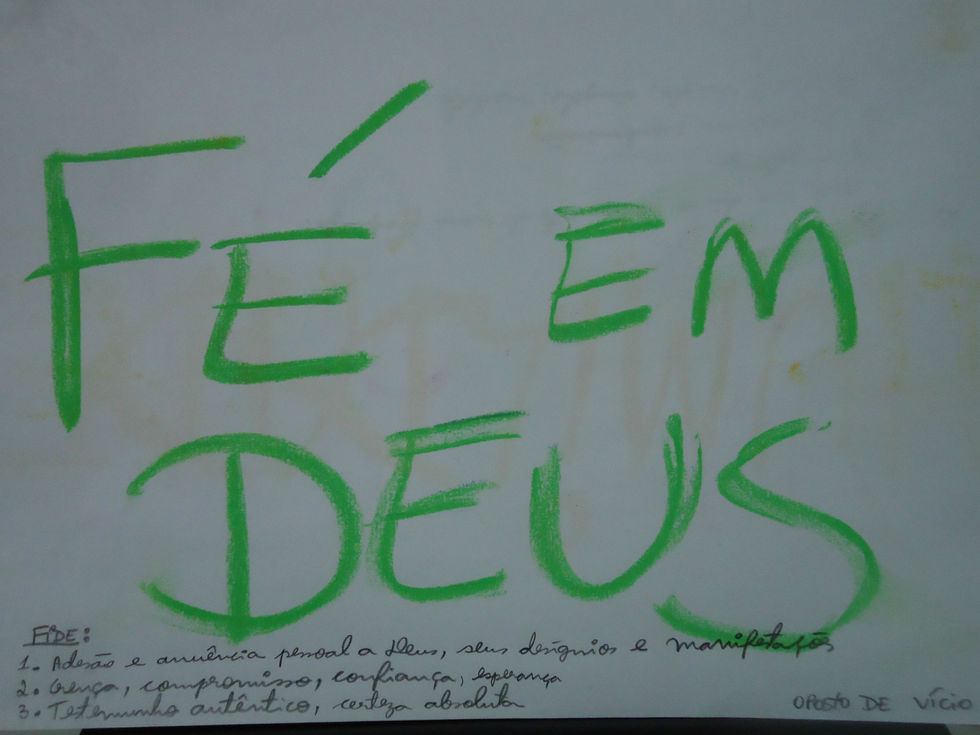 FÉ EM
DEUS
FIDE:
1. Adesão e anuência pessoal a Deus, seus desígnios e manifestações
2. Crença, compromisso, confiança, esperança
3. Testemunho autêntico, certeza absoluta
OPOSTO DE VÍCIO